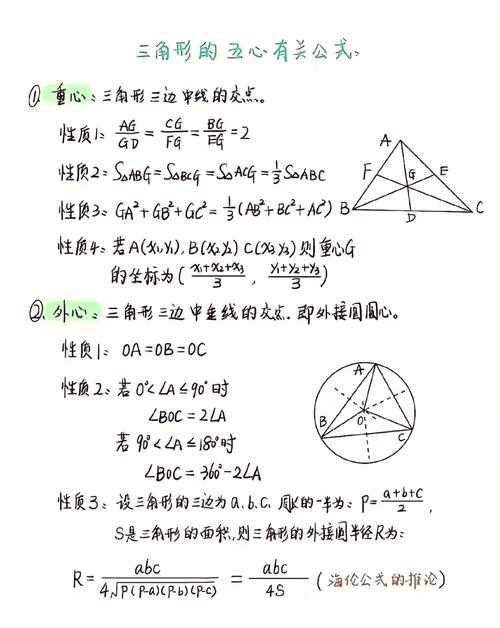 三角形的五心有关公式:
① 重心:三角形三边中线的交点。
性质1: AG/GD = CG/FG = BG/EG = 2
性质2: S△ABG=S△BCG=S△ACG=1/3 S△ABC
性质3: GA²+GB²+GC²=1/3(AB²+BC²+AC²)
性质4: 若A(x₁,y₁), B(x₂y₂) C(x₃y₃)则重心G
的坐标为( x₁+x₂+x₃/3 , y₁+y₂+y₃/3 )
A
F
E
G
B
D
C
② 外心:三角形三边中垂线的交点.即外接圆圆心。
性质1: OA=OB=OC
性质2: 若0°<∠A≤90°时
∠BOC=2∠A
若90°<∠A≤180°时
∠BOC=360°-2∠A
A
B
O
C
性质3: 设三角形的三边为a.b.c. 周长的一半为: P=a+b+c/2,
S是三角形的面积,则三角形的外接圆半径R为:
R= abc/4√P(P-a)(P-b)(P-c) = abc/4S (海伦公式的推论)